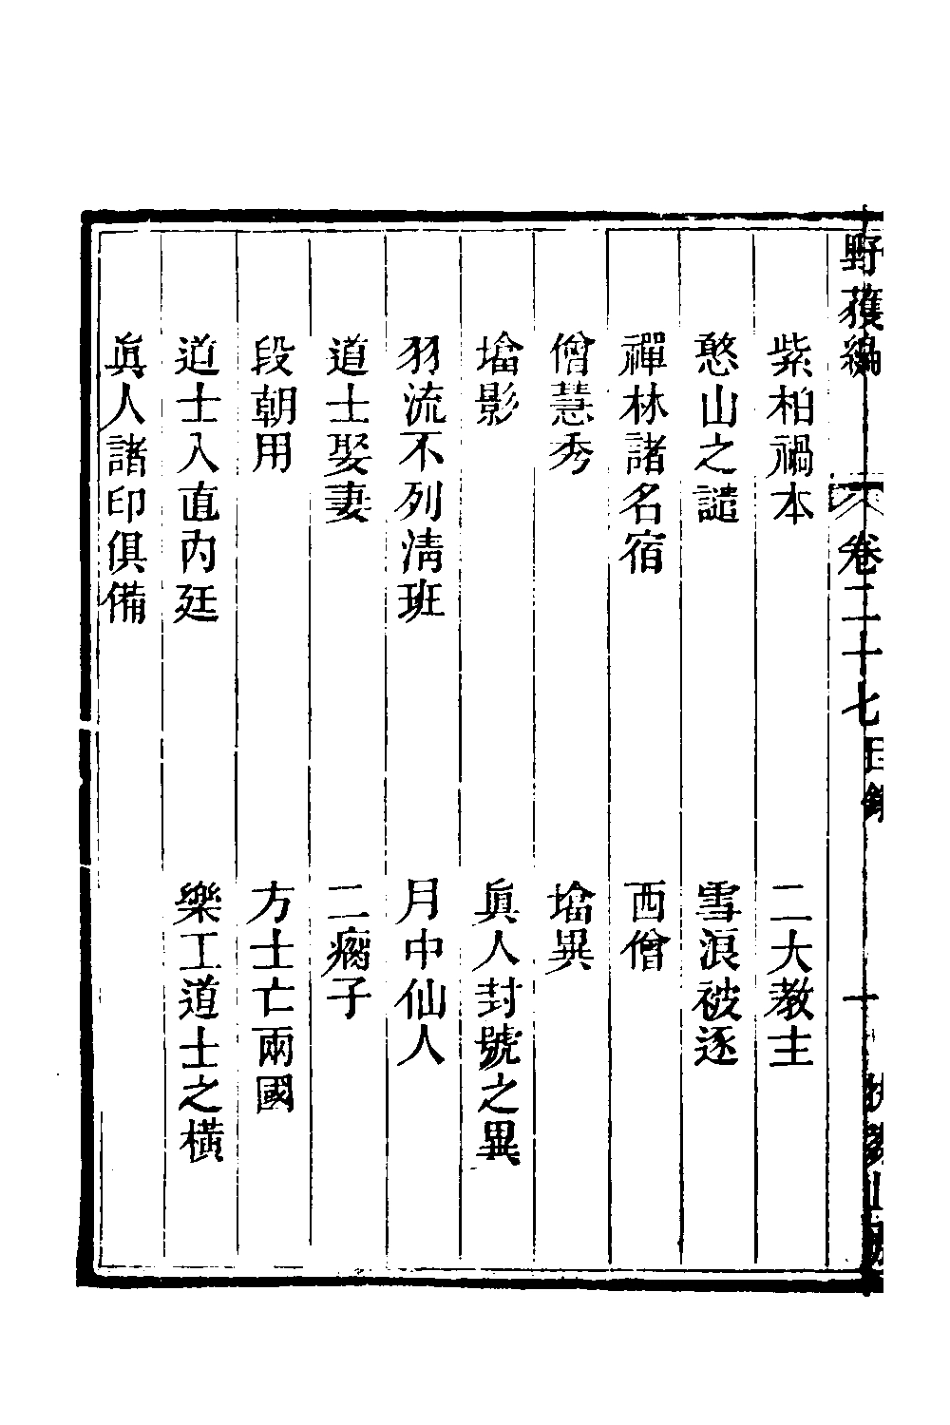 野獲編 卷二十七目錄 一
紫柏禍本 二大教主
憨山之譴 雪浪被逐
禪林諸名宿 西僧
僧慧秀 塔異
塔影 眞人封號之異
羽流不列淸班 月中仙人
道士娶妻 二瘸子
段朝用 方士亡兩國
道士入直內廷 樂工道士之橫
眞人諸印俱備